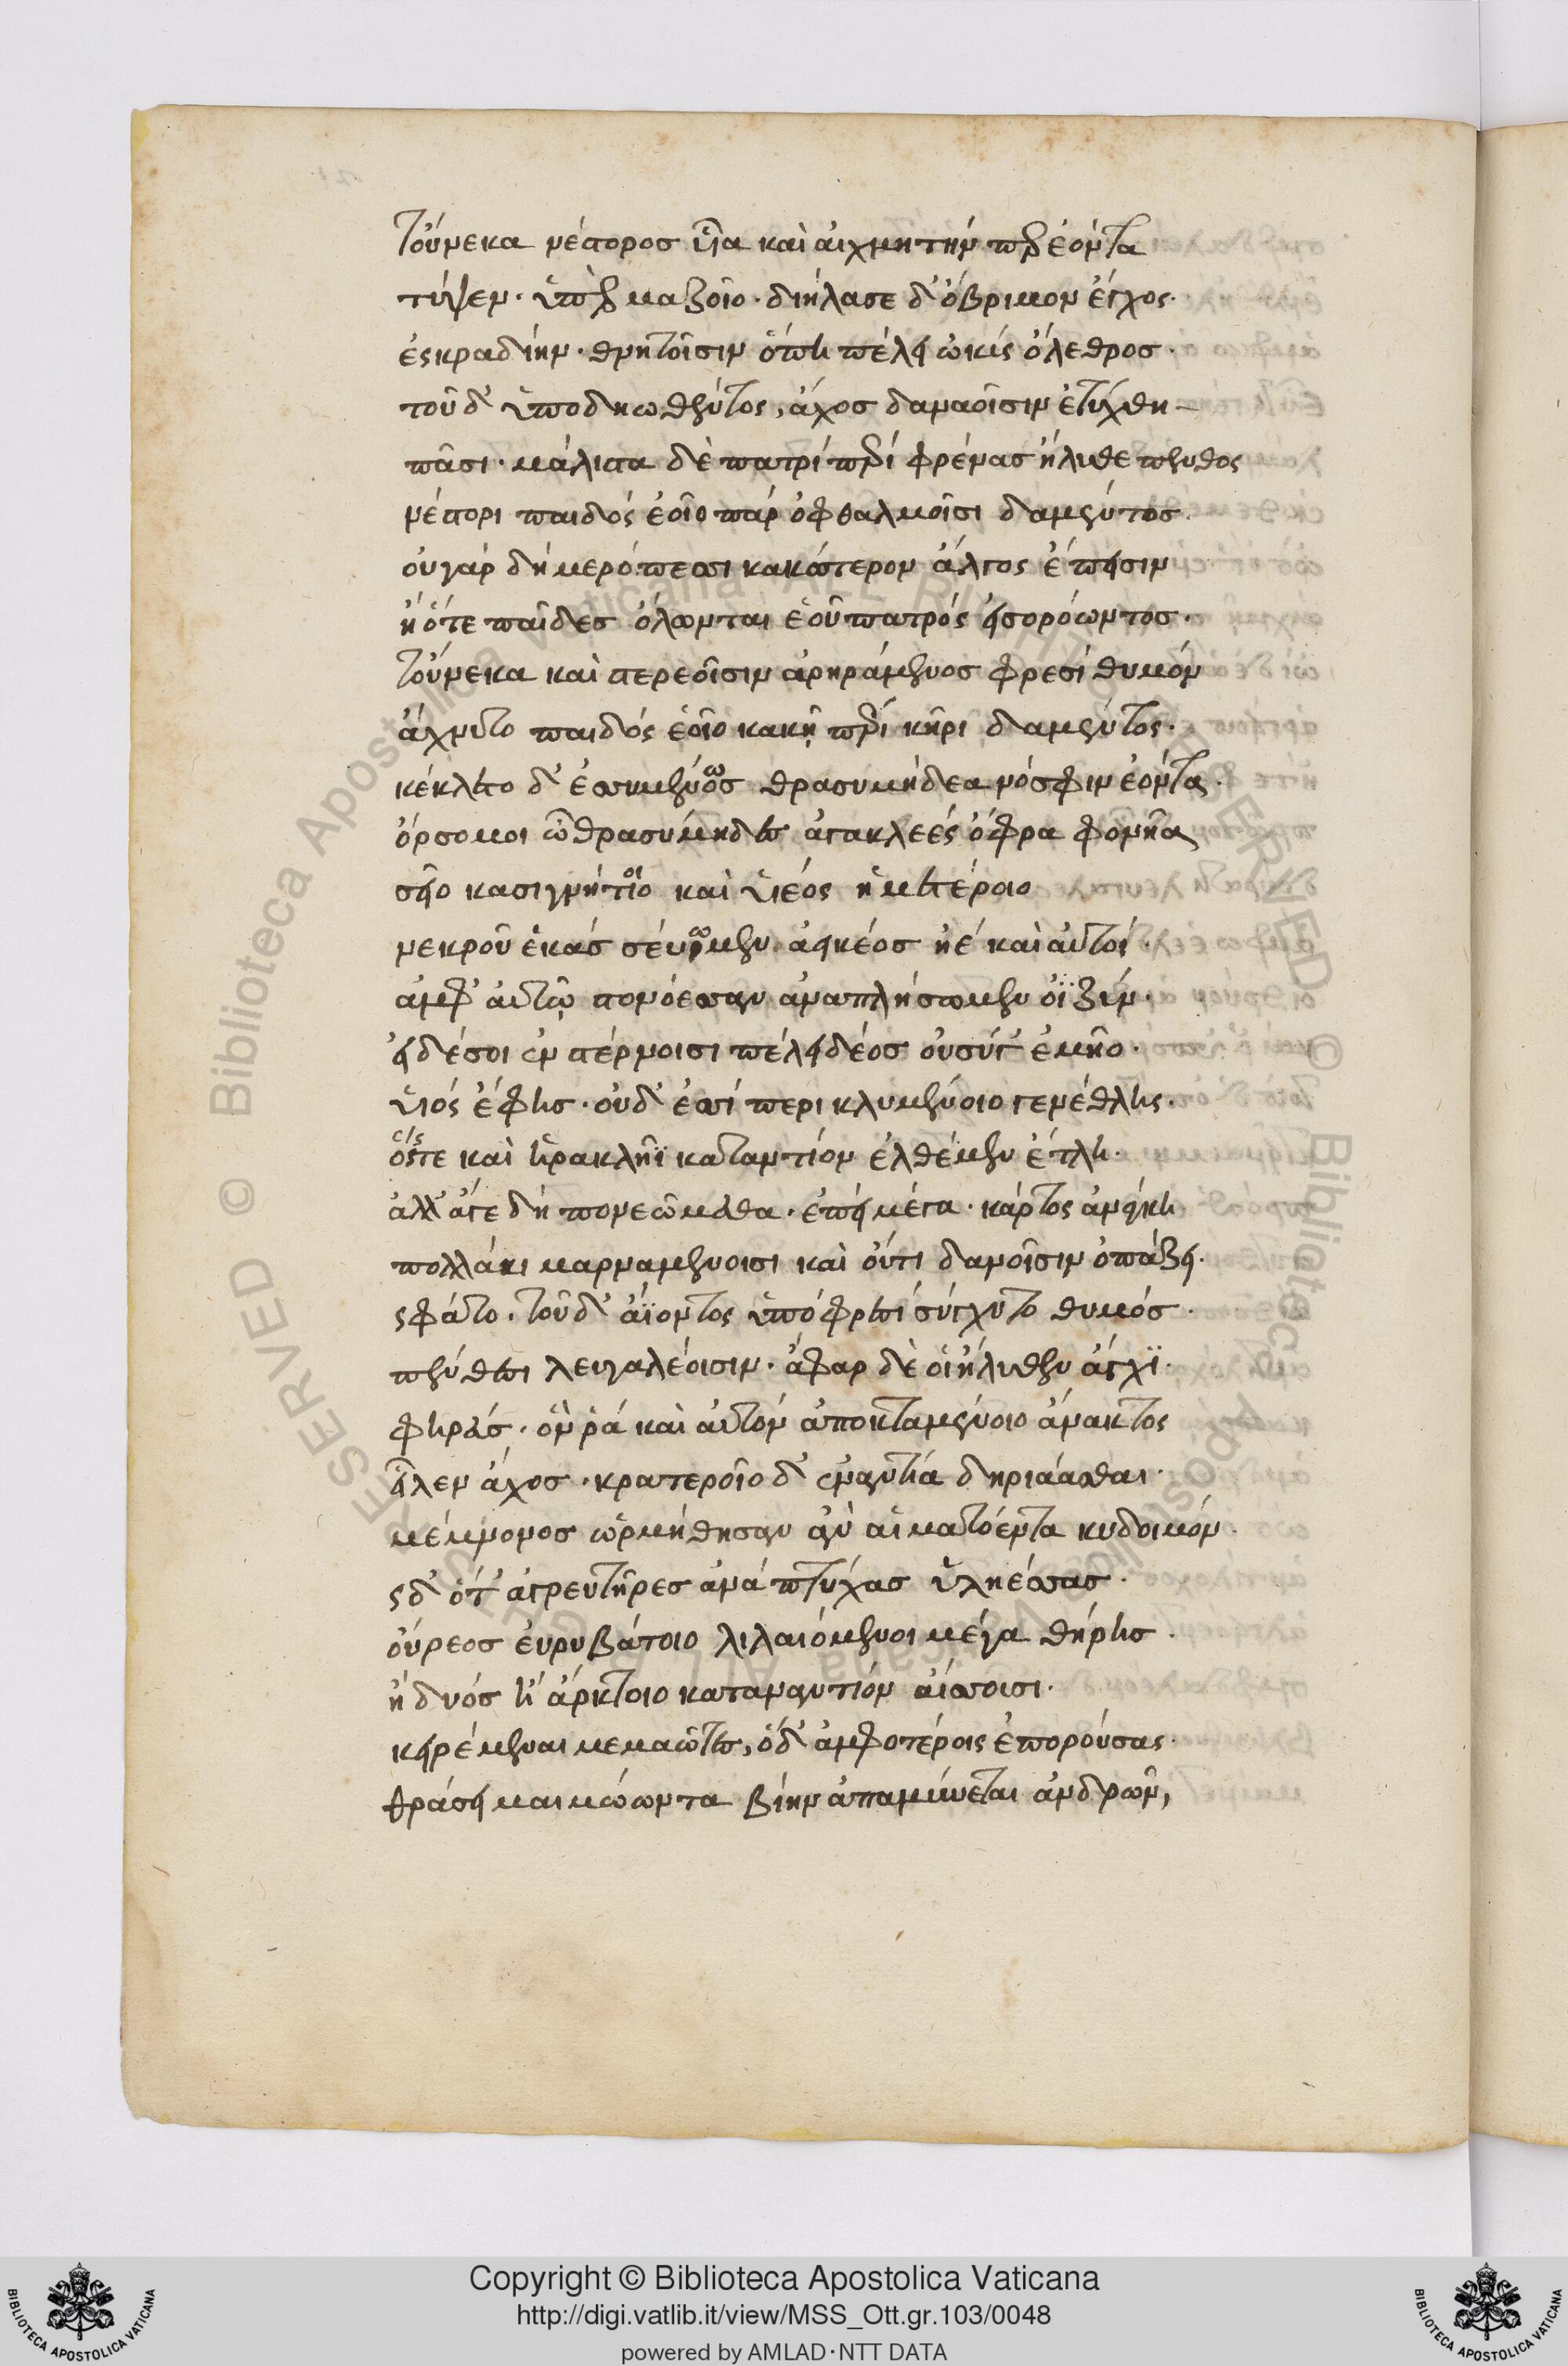 τοὔνεκα νέστορος υἷα καὶ αἰχμητήν περ ἐόντα
τύψεν· ὑπὲρ μαζοῖο· διήλασε δ' ὄβριμον ἔγχος·
ἐς κραδίην· θνητοῖσιν ὅπη πέλει ὠκὺς ὄλεθρος·
τοῦ δ' ὑποδηωθέντος, ἄχος δαναοῖσιν ἐτύχθη
πᾶσι· μάλιστα δὲ πατρὶ περὶ φρένας ἤλυθε πένθος
νέστορι παιδὸς ἑοῖο παρ ὀφθαλμοῖσι δαμέντος·
οὐ γὰρ δὴ μερόπεσσι κακώτερον ἄλγος ἔπεισιν
ἢ ὅτε παῖδες ὄλωνται ἑοῦ πατρὸς εἰσορόωντος·
τοὔνεκα καὶ στερεοῖσιν ἀρηράμενος φρεσὶ θυμὸν
ἄχνυτο παιδὸς ἑοῖο κακῇ περὶ κηρὶ δαμέντος·
κέκλετο δ' ἐσσυμένως θρασυμήδεα νόσφιν ἐόντα·
ὄρσο μοι ὦ θρασύμηδες ἀγακλεὲς ὄφρα φονῆα
σεῖο κασιγνήτοιο καὶ υἱέος ἡμετέροιο
νεκροῦ ἑκὰς σεύωμεν ἀεικέος ἠὲ καὶ αὐτοὶ·
ἀμφ' αὐτῷ στονόεσσαν ἀναπλήσωμεν ὀϊζύν·
εἰ δέ σοι ἐν στέρνοισι πέλει δέος οὐ σύ γ' ἐμεῖο·
υἱὸς ἔφης· οὐδ' ἐσσὶ περικλυμένοιο γενέθλης·
ὅς τε καὶ ἡρακλῆϊ καταντίον ἐλθέμεν ἔτλη·
ἀλλ' ἄγε δὴ πονεώμεθα· ἐπεὶ μέγα· κάρτος ἀνάγκη
πολλάκι μαρναμένοισι καὶ οὔτι δανοῖσιν ὀπάζει·
ὣς φάτο· τοῦ δ' ἀΐοντος ὑπὸ φρεσὶ σύγχυτο θυμὸς·
πένθεσι λευγαλέοισιν· ἄφαρ δέ οἱ ἤλυθεν ἄγχϊ·
φηρεύς· ὅν ῥά καὶ αὐτὸν ἀποκταμένοιο ἄνακτος
εἷλεν ἄχος· κρατεροῖο δ' ἐναντία δηριάασθαι·
μέμνονος ὡρμήθησαν ἀν' αἱματόεντα κυδοιμόν·
ὡς δ' ὅτ' ἀγρευτῆρες ἀνὰ πτύχας ὑληέσσας·
οὔρεος εὐρυβάτοιο λιλαιόμενοι μέγα θήρης·
ἢ δυὸς ἢ ἄρκτοιο καταναντίον ἀΐσσοισι·
κτειρέμεναι μεμαῶτες, ὁ δ' ἀμφοτέροις ἐπορούσας·
θράσει μαιμώωντα βίην ἀπαμύνεται ἀνδρῶν,
Copyright © Biblioteca Apostolica Vaticana
http://digi.vatlib.it/view/MSS_Ott.gr.103/0048
powered by AMLAD·NTT DATA